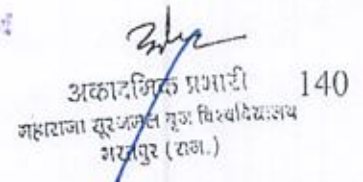 अकादमिक प्रभारी 140
महाराजा सूरजमल बृज विश्वविद्यालय
भरतपुर (राज.)